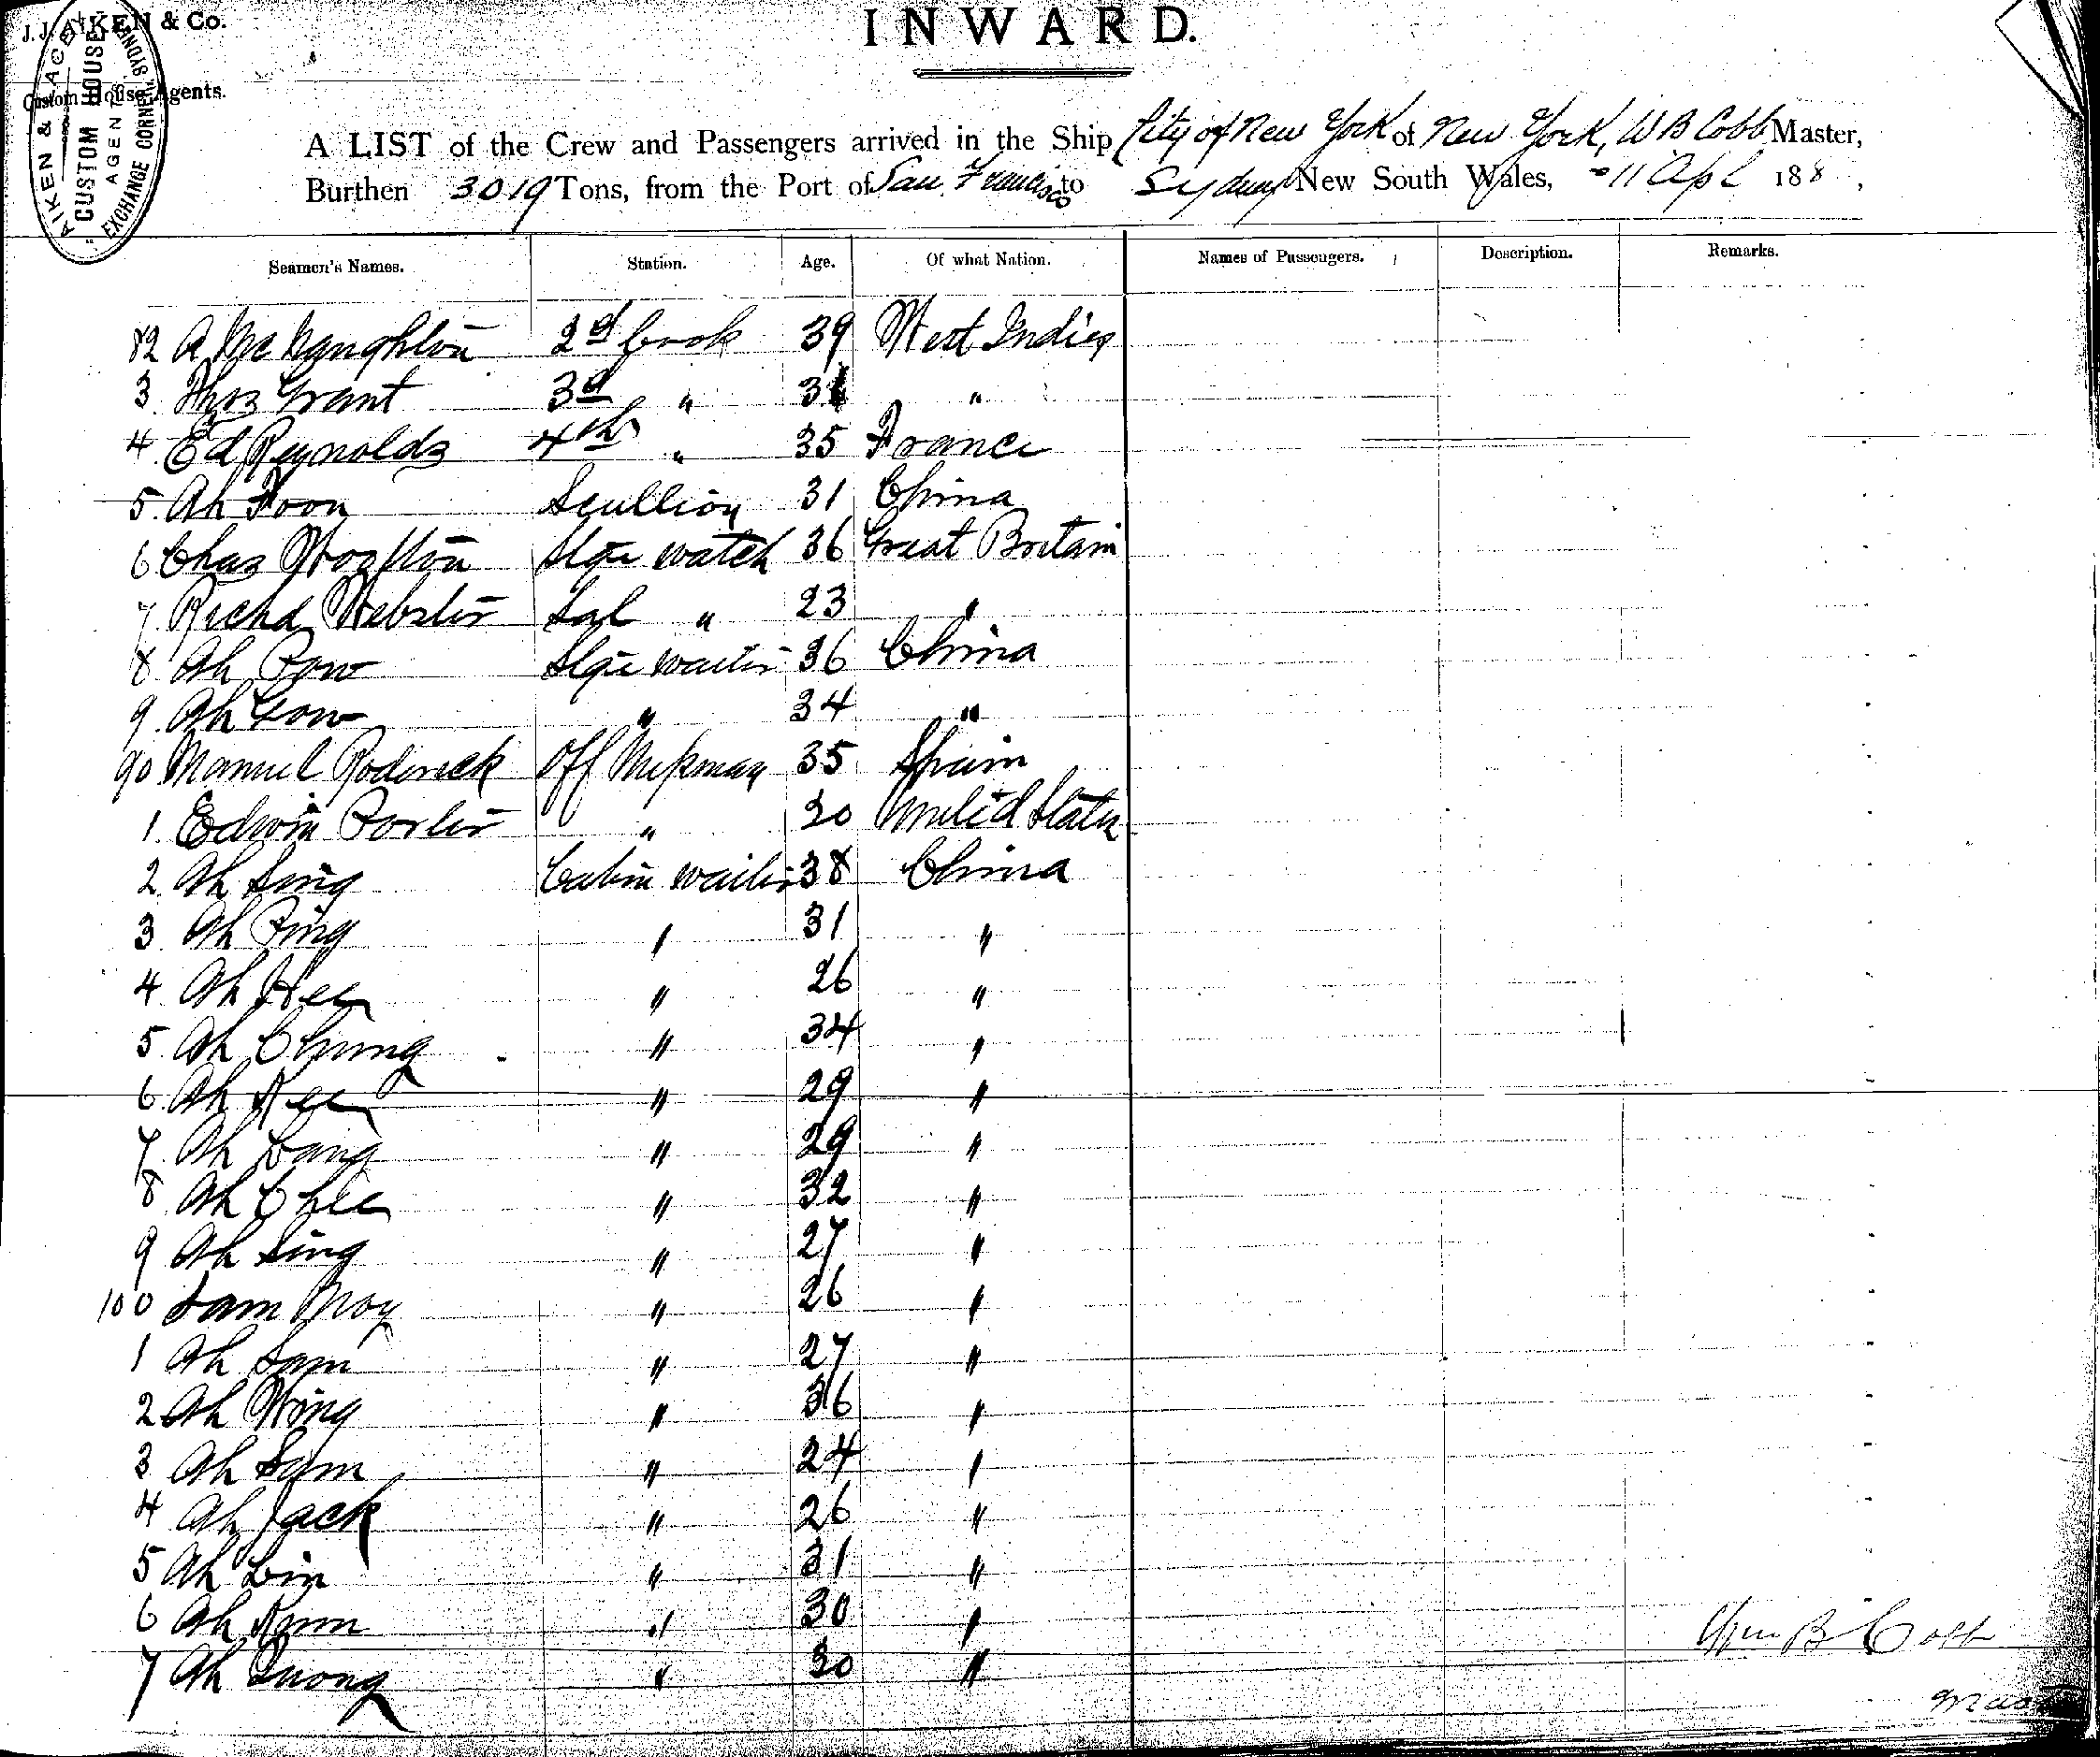 INWARD.
J. J. AIKEN & Co.
Custom House Agents.
AIKEN & 
CUSTOM HOUSE
AGENTS
EXCHANGE CORNER, SYDNEY
A LIST of the Crew and Passengers arrived in the Ship City of New York of New York, W B Cobb Master,
Burthen 3019 Tons, from the Port of San Francisco to Sydney New South Wales, 11 Apl 188 ,
Seamen's Names. Station. Age. Of what Nation. Names of Passengers. Description. Remarks.
82 A McNaughton 2d Cook 39 West Indies
3 Thos Grant 3d " "
4 Ed Reynolds 4th " 35 France
5 Ah Foon Scullion 31 China
6 Chas Stge watch 36 Great Britain
7 Richd Webster Sal " 23 "
8 Ah Pow Stge waiter 36 China
9 Ah Gow " 34 "
90 Manuel Roderick Off Messman 35 Spain
1 Edwin Porter " 20 United States
2 Ah Sing Cabin waiter 38 China
3 Ah Ping " 31 "
4 Ah Hee " 26 "
5 Ah Chung " 34 "
6 Ah Kee " 29 "
7 Ah Lang " 29 "
8 Ah Chee " 32 "
9 Ah Sing " 27 "
100 Sam Moy " 26 "
1 Ah Sam " 27 "
2 Ah Wing " 36 "
3 Ah Sam " 24 "
4 Ah Jack " 26 "
5 Ah Lin " 31 "
6 Ah Kum " 30 "
7 Ah Quong " 30 "
Wm B Cobb
Master